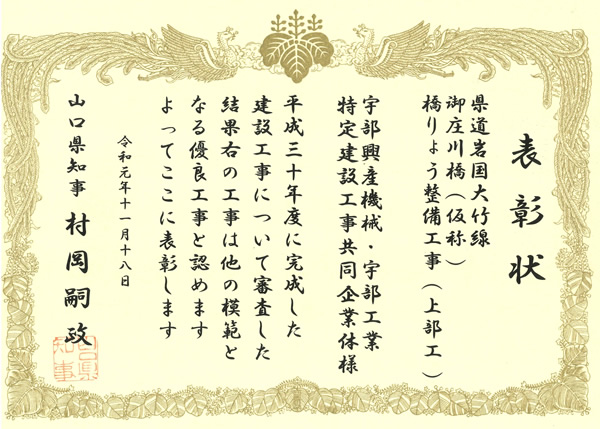 表彰状
県道岩国大竹線
御庄川橋（仮称）
橋りょう整備工事（上部工）
宇部興産機械・宇部工業
特定建設工事共同企業体様
平成三十年度に完成した
建設工事について審査した
結果右の工事は他の模範と
なる優良工事と認めます
よってここに表彰します
令和元年十一月十八日
山口県知事 村岡嗣政
山口県
知事